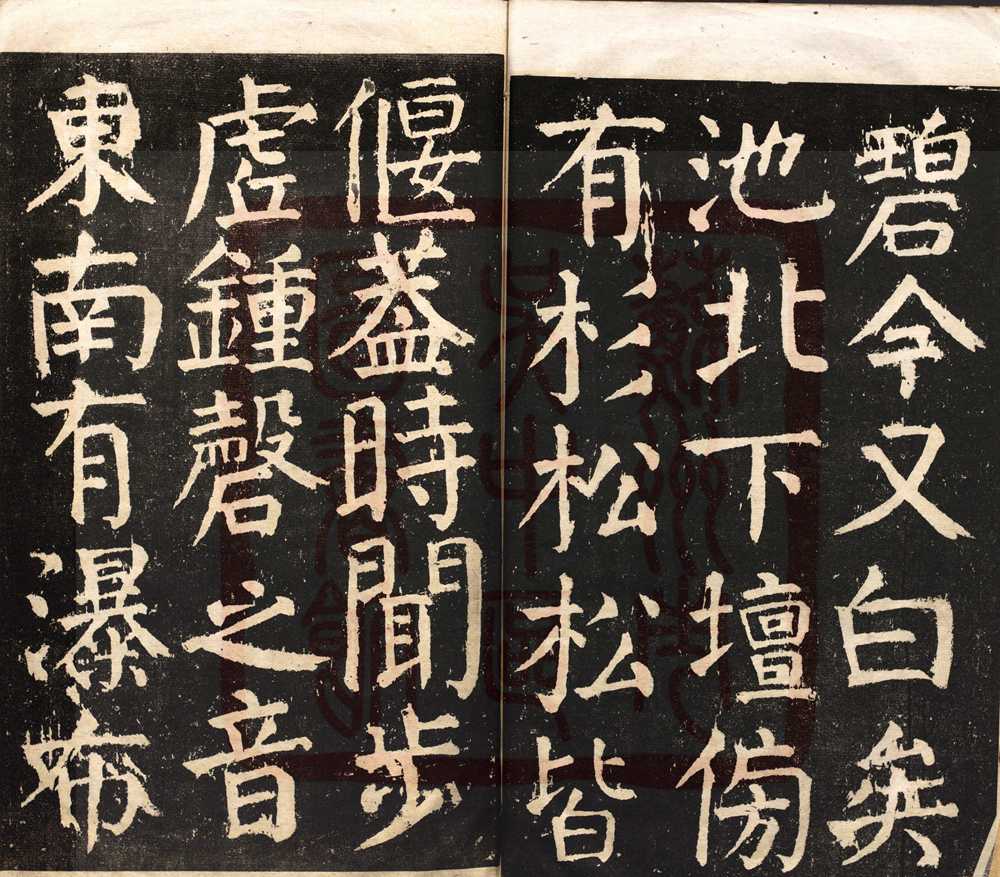 碧今又白矣
池北下壇傍
有杉松松皆
偃蓋時聞步
虛鍾磬之音
東南有瀑布